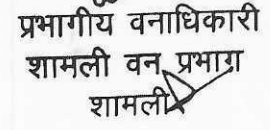 प्रभागीय वनाधिकारी
शामली वन प्रभाग
शामली